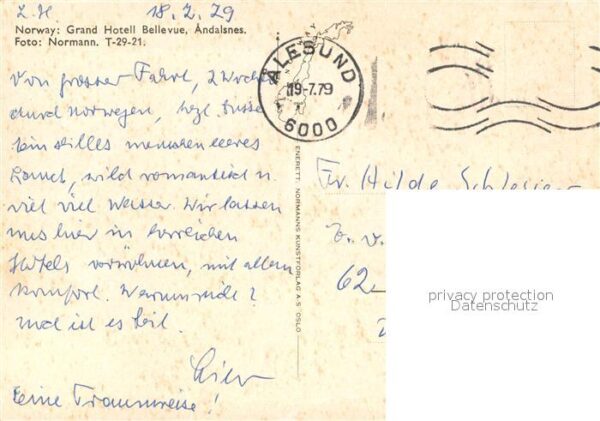 18.7.79
Norway: Grand Hotell Bellevue, Åndalsnes.
Foto: Normann. T-29-21.
ÅLESUND
19-7.79
6000
Von grosser Fahrt, 2 Wochen
durch Norwegen, hzl. Grüsse
ein stilles menschenleeres
Land, wild romantisch u.
viel viel Wasser. Wir lassen
uns hier in
Hotels verwöhnen, mit allem
Komfort. Warum nicht?
Mal ist es Zeit.
eine Traumreise!
ENERETT: NORMANNS KUNSTFORLAG A.S. OSLO
Fr. Hilde
62
privacy protection
Datenschutz